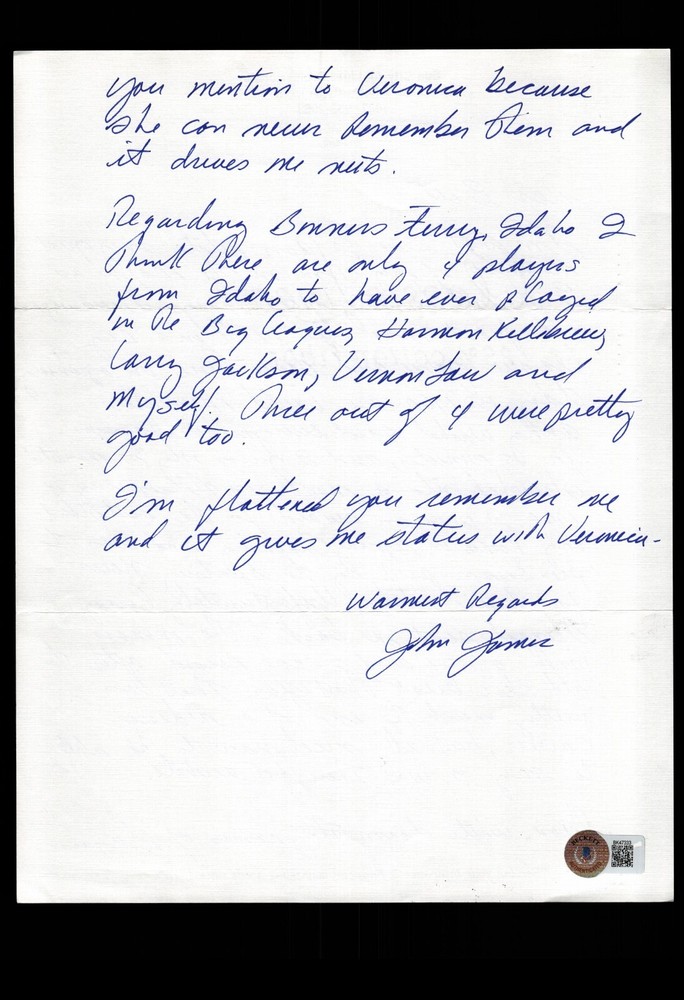 you mention to Veronica because
she can never remember them and
it drives me nuts.
Regarding Bonners Ferry, Idaho I
think there are only 4 players
from Idaho to have ever played
in the Big Leagues, Harmon Killebrew,
Larry Jackson, Vernon Law and
myself. Three out of 4 were pretty
good too.
I'm flattered you remember me
and it gives me status with Veronica-
Warmest Regards
John James
BECKETT
BK47333